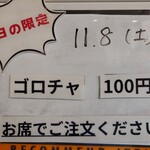 日の限定
11.8 (土
ゴロチャ 100円
お席でご注文くださ
RECOMMEND